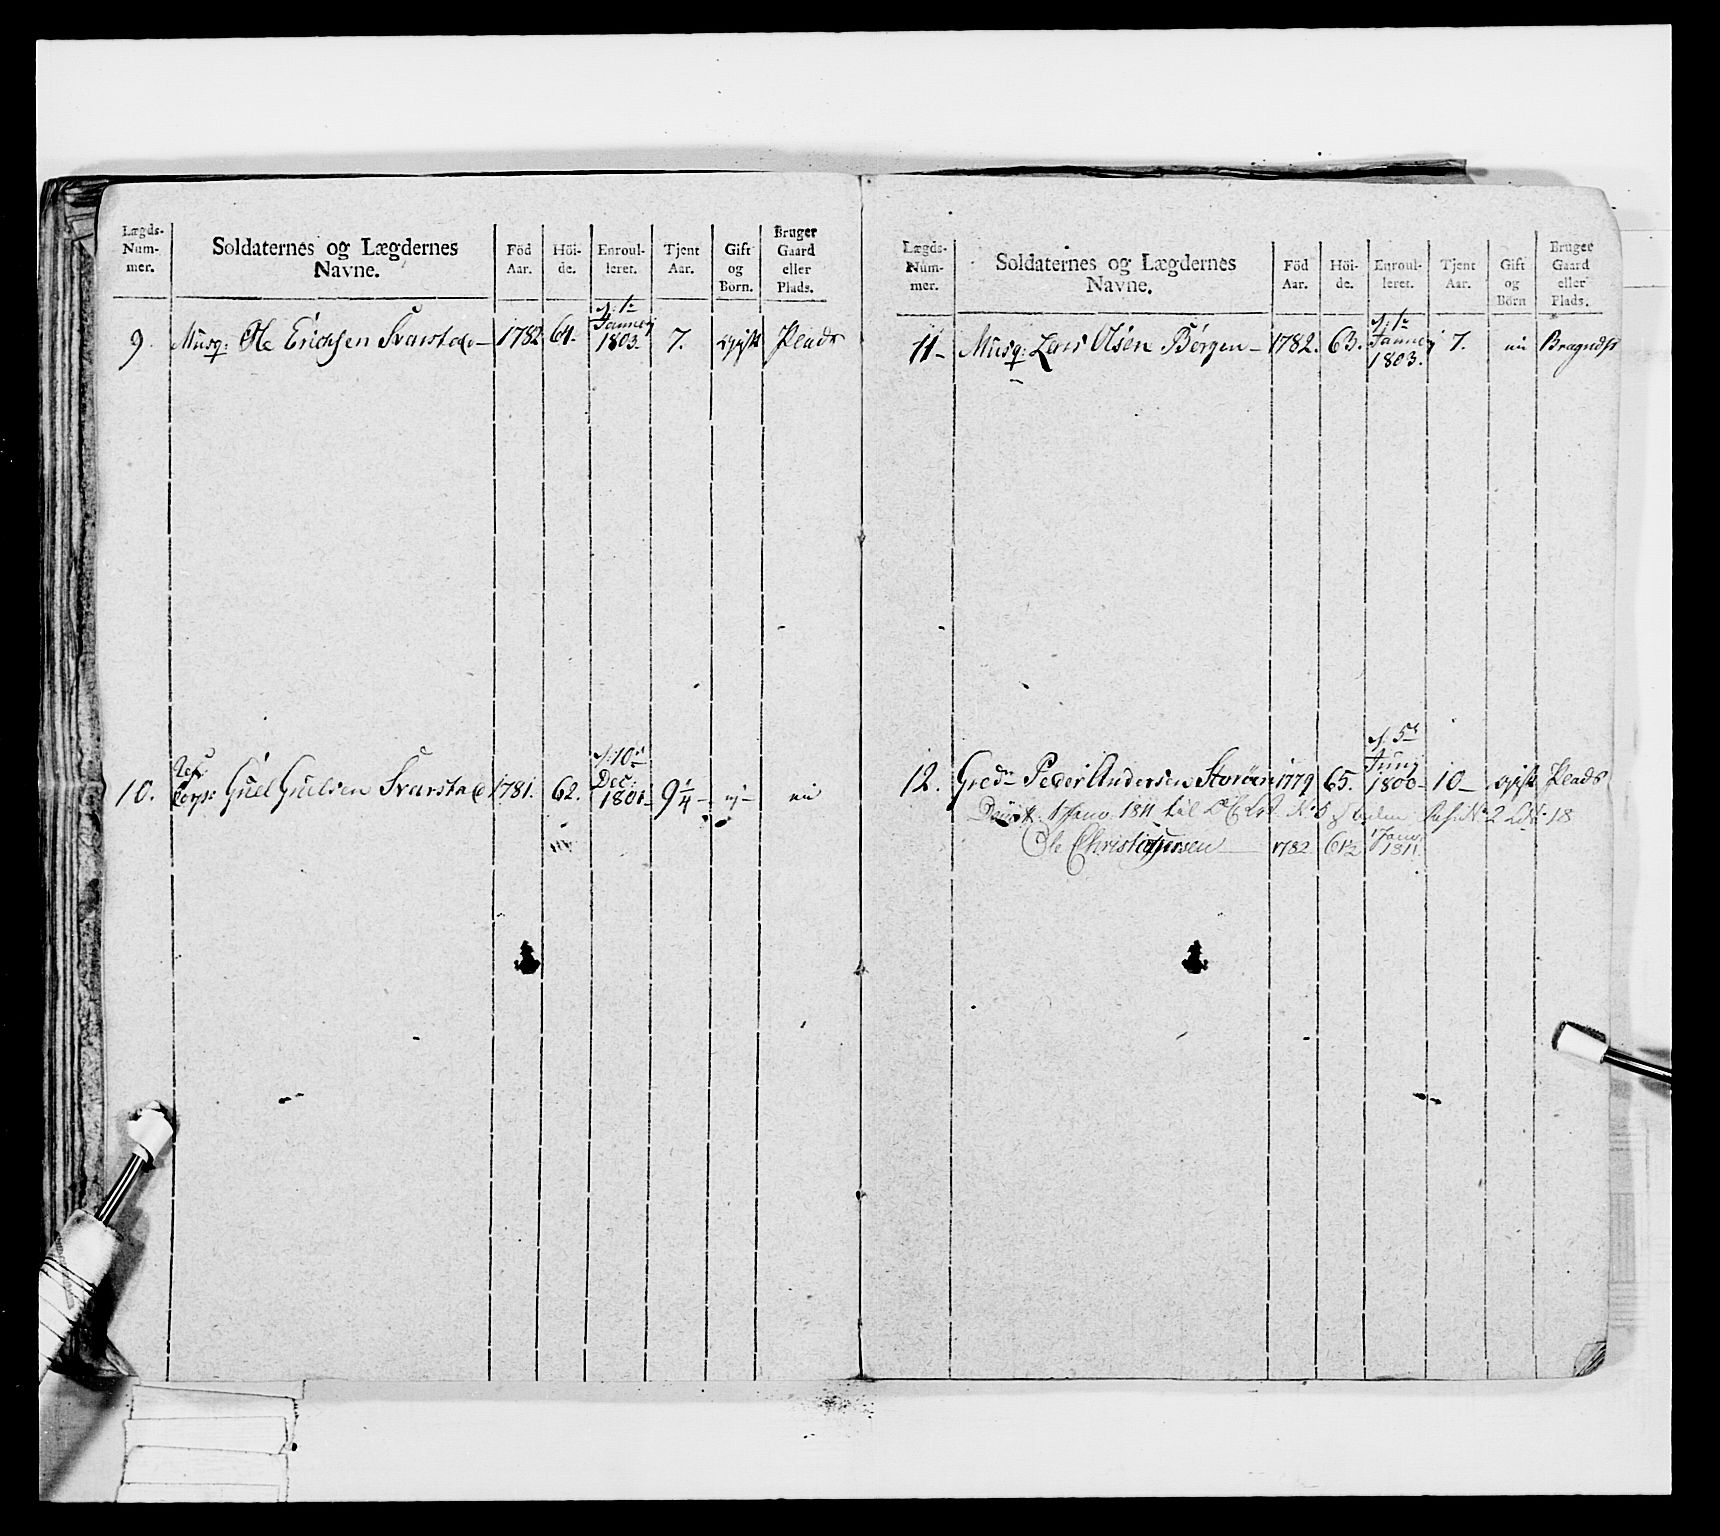 Lægds-Num-mer. Soldaternes og Lægdernes Navne. Föd Aar. Höi-de. Enroul-leret. Tjent Aar. Gift og Börn. Bruger Gaard eller Plads.
d. 1e
9. Musq: Ole Erichsen Svarstad – 1782. 61. Januarj 1803. 7. ugift Plads
d: 10de
10. Corp: Gúel Guelsen Svarstad 1781. 62. Dec: 1801 – 9 1/4 – nei
Lægds-Num-mer. Soldaternes og Lægdernes Navne. Föd Aar. Höi-de. Enroul-leret. Tjent Aar. Gift og Börn Bruger Gaard eller Plads.
d. 1e
11 – Musq: Lars Olsen Börgen – 1782. 63. Januarj 1803. 7. Bragnes
d. 5te
12. Gredr Peder Andersen Storöen 1779 65. Junj 1800 – 10 – ugift Plads
1 Janv. 1811 til No 5 No 2 18
Ole Christophersen 1782 61½ 1 Janv 1811